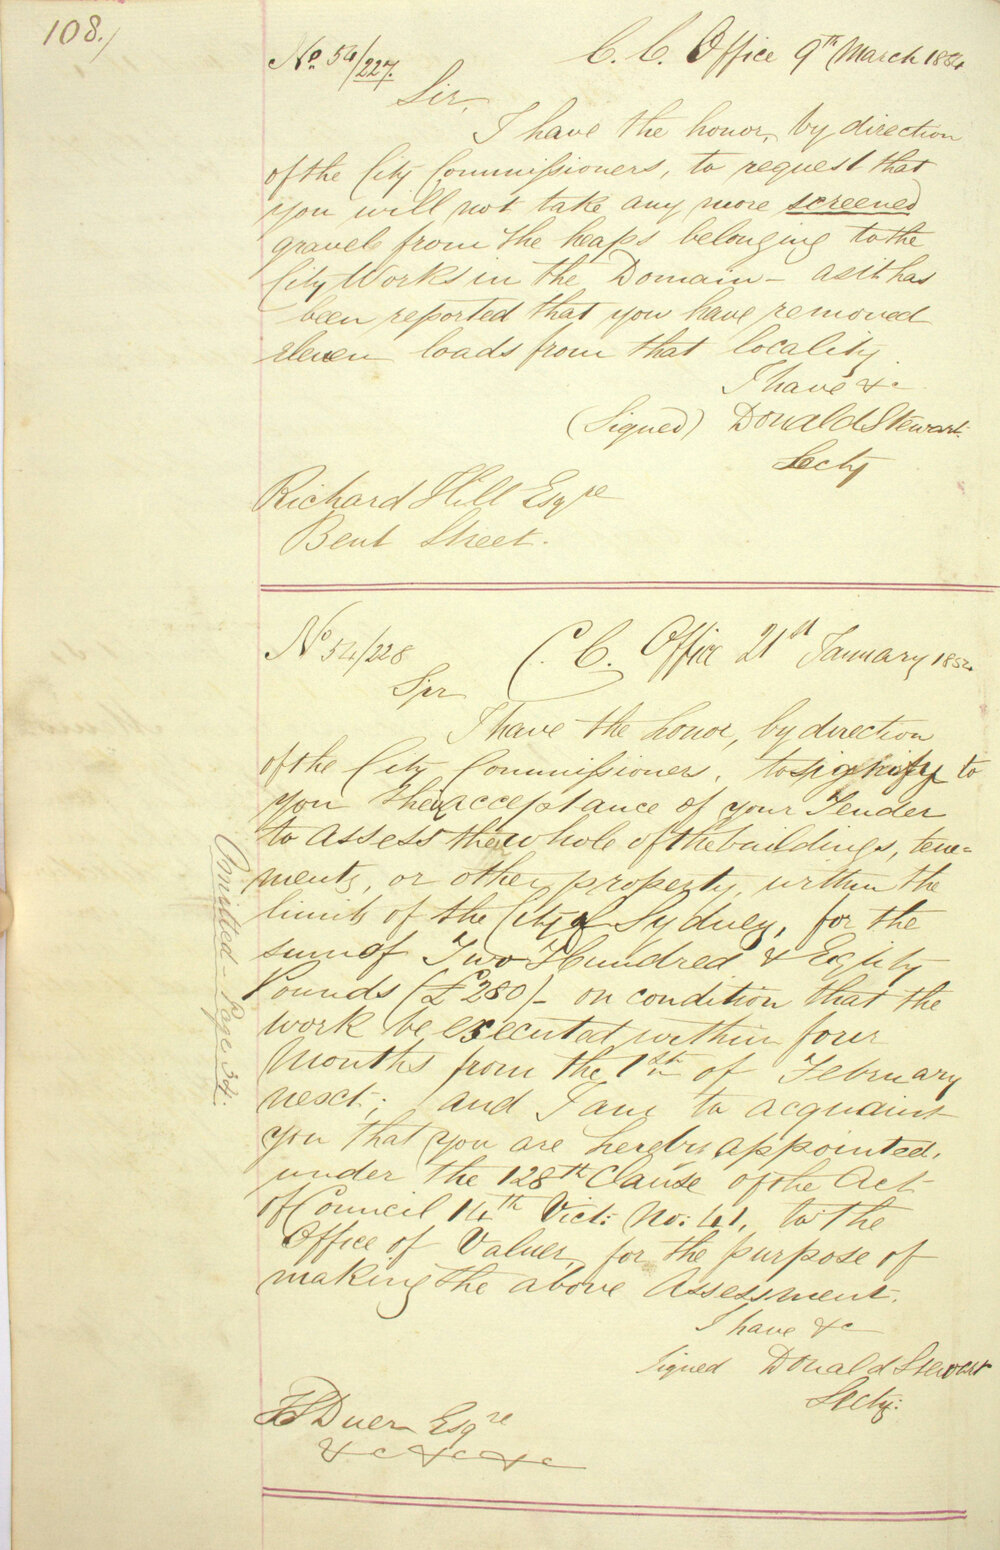 108.
No. 54/227.
C. C. Office 9th March 1854
Sir,
I have the honor, by direction
of the City Commissioners, to request that
you will not take any more screened
gravels from the heaps belonging to the
City Works in the Domain – as it has
been reported that you have removed
eleven loads from that locality
I have &c
(Signed) Donald Stewart.
Secty
Richard Hill Esqre
Bent Street.
No 54/228
C. C. Office 21st January 1854
Sir
I have the honor, by direction
of the City Commissioners, to signify to
you their acceptance of your Tender
to assess the whole of the buildings, tene=
ments, or other property, within the
limits of the City of Sydney, for the
sum of Two Hundred & Eighty
Pounds (£280) – on condition that the
work be executed within four
Months from the 1st of February
next; and I am to acquaint
you that you are hereby appointed,
under the 128th Clause of the Act
of Council 14th Vict: No: 41, to the
Office of Valuer, for the purpose of
making the above Assessment.
I have &c
Signed Donald Stewart
Secty:
Duer Esqre
&c &c &c
Omitted – Page 34: